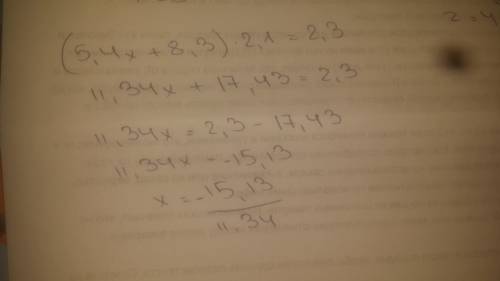 (5,4x + 8,3) · 2,1 = 2,3
11,34x + 17,43 = 2,3
11,34x = 2,3 - 17,43
11,34x = -15,13
x = -15,13
11,34
2 = 4